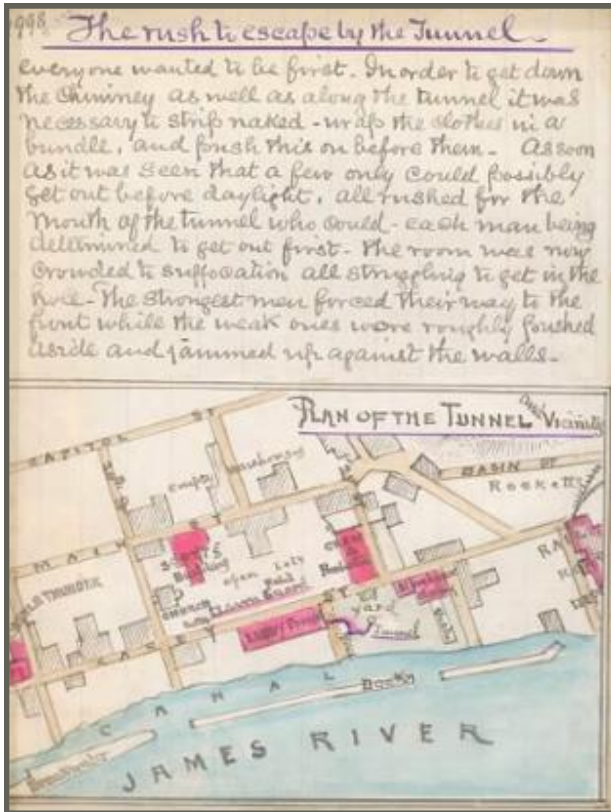 The rush to escape by the Tunnel
everyone wanted to be first. In order to get down
the chimney as well as along the tunnel it was
necessary to strip naked - wrap the clothes in a
bundle, and push this on before them - As soon
as it was seen that a few only could possibly
get out before daylight, all rushed for the
mouth of the tunnel who could - each man being
determined to get out first - the room was now
crowded to suffocation all struggling to get in the
hole - the strongest men forced their way to the
front while the weak ones were roughly pushed
aside and jammed up against the walls -
PLAN OF THE TUNNEL and Vicinity
CAPITOL ST
BASIN ST
Rocketts
empty
MAIN ST
Building
open Lots
CHURCH
CAREY ST
yard
Tunnel
CANAL
Docks
JAMES RIVER